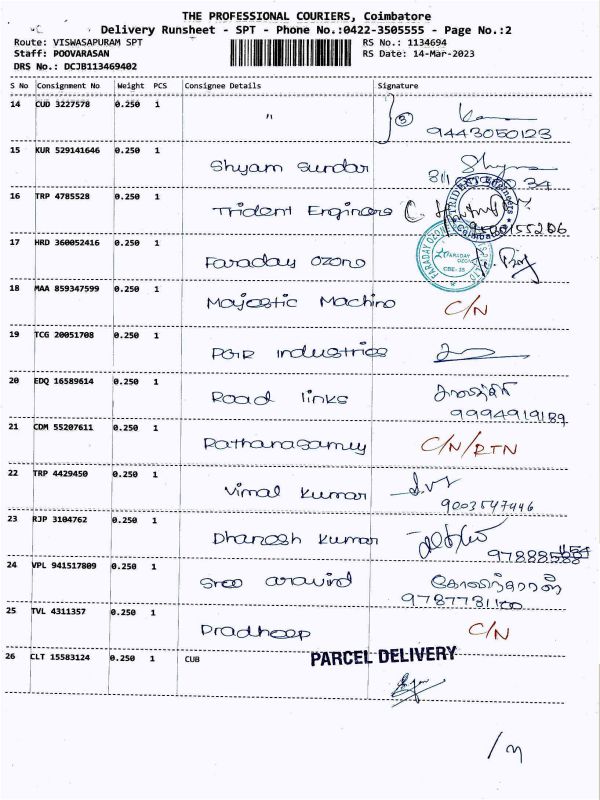 THE PROFESSIONAL COURIERS, Coimbatore
Delivery Runsheet - SPT - Phone No.:0422-3505555 - Page No.:2
Route: VISWASAPURAM SPT
RS No.: 1134694
Staff: POOVARASAN
RS Date: 14-Mar-2023
DRS No.: DCJB113469402
S No Consignment No Weight PCS Consignee Details Signature
14 CUD 3227578 0.250 1 " 3
9443050123
15 KUR 529141646 0.250 1 Shyam Sundar
16 TRP 4785528 0.250 1 Trident Engineers
TRIDENT Engineers Coimbatore
17 HRD 360052416 0.250 1 Faraday Ozone
FARADAY OZONE
CBE-35
18 MAA 859347599 0.250 1 Majestic Machine C/N
19 TCG 20051708 0.250 1 PGR Industries
20 EDQ 16589614 0.250 1 Road links
9994919189
21 CDM 55207611 0.250 1 Rathanasamy C/N/RTN
22 TRP 4429450 0.250 1 Vimal Kumar
9003547446
23 RJP 3104762 0.250 1 Dhanesh Kumar
24 VPL 941517809 0.250 1 Sree aravind
25 TVL 4311357 0.250 1 Pradheep C/N
26 CLT 15583124 0.250 1 CUB PARCEL DELIVERY